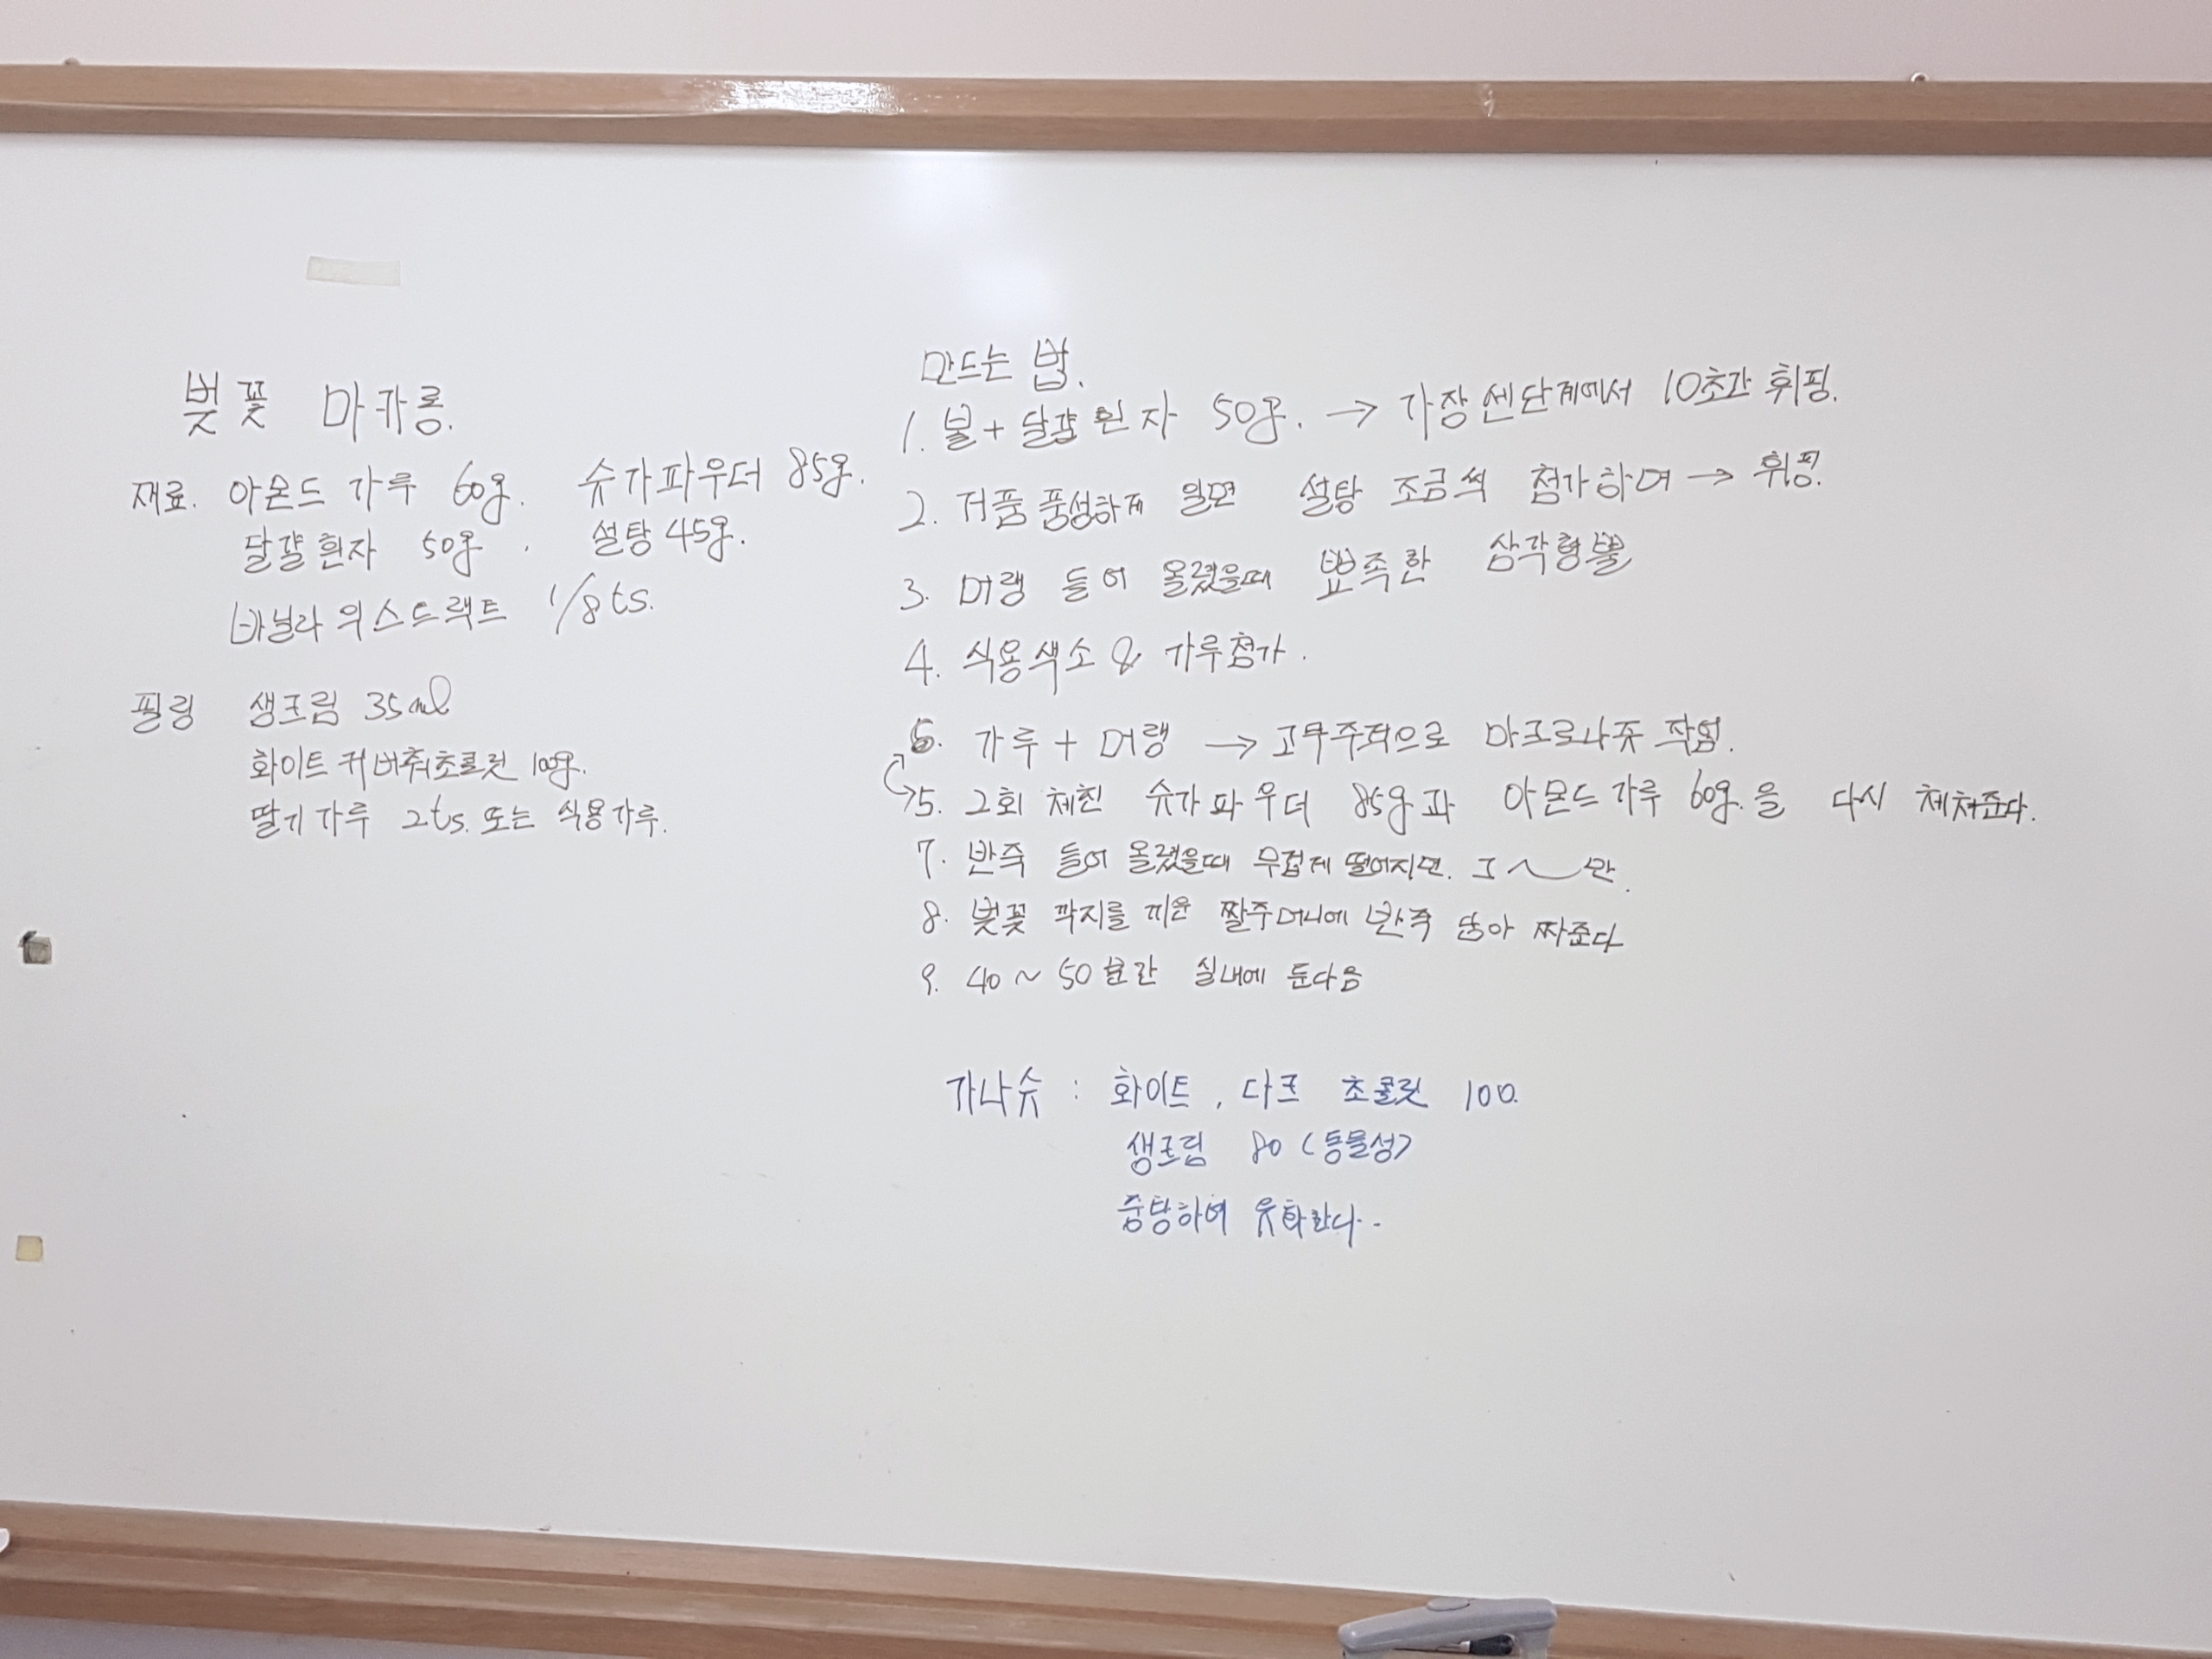 벚꽃 마카롱.
재료. 아몬드 가루 60g. 슈가파우더 85g.
달걀흰자 50g. 설탕 45g.
바닐라 익스트랙트 1/8ts.
필링 생크림 35ml
화이트 커버춰초콜릿 100g.
딸기가루 2ts. 또는 식용가루.
만드는 법.
1. 볼+달걀흰자 50g. → 가장센단계에서 10초간 휘핑.
2. 거품 풍성하게 일면 설탕 조금씩 첨가하여 → 휘핑.
3. 머랭 들어 올렸을때 뾰족한 삼각형뿔
4. 식용색소 & 가루첨가.
6. 가루 + 머랭 → 고무주걱으로 마크로나쥬 작업.
5. 2회 체친 슈가파우더 85g과 아몬드가루 60g.을 다시 체쳐준다.
7. 반죽 들어 올렸을때 무겁게 떨어지면. 그~만.
8. 벚꽃 깍지를 끼운 짤주머니에 반죽 담아 짜준다
9. 40~50분간 실내에 둔다음
가나슈 : 화이트, 다크 초콜릿 100.
생크림 80 (동물성)
중탕하여 유화한다..